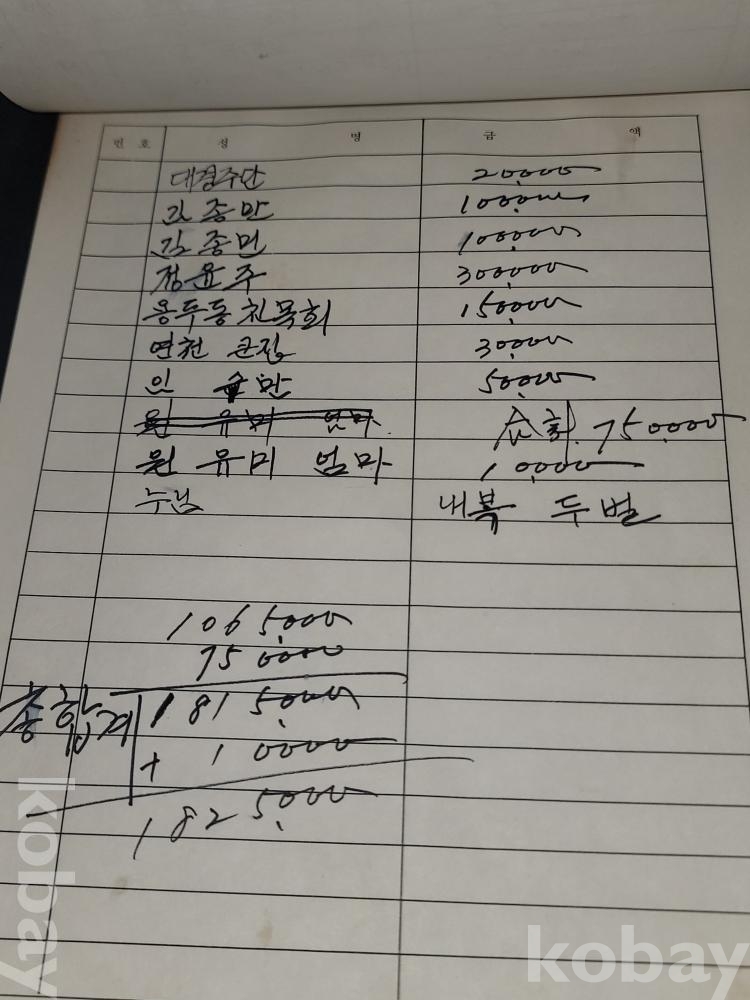 번 호 성 명 금 액
대경주단 20,000
김종만 100,000
김종민 100,000
정윤주 300,000
용두동 친목회 150,000
연천 큰집 30,000
인 만 50,000
원 유미 엄마 合計. 750,000
원 유미 엄마 10,000
누님 내복 두벌
1065,000
750000
총합계 1815,000
+ 10000
1825,000
kobay
kobay